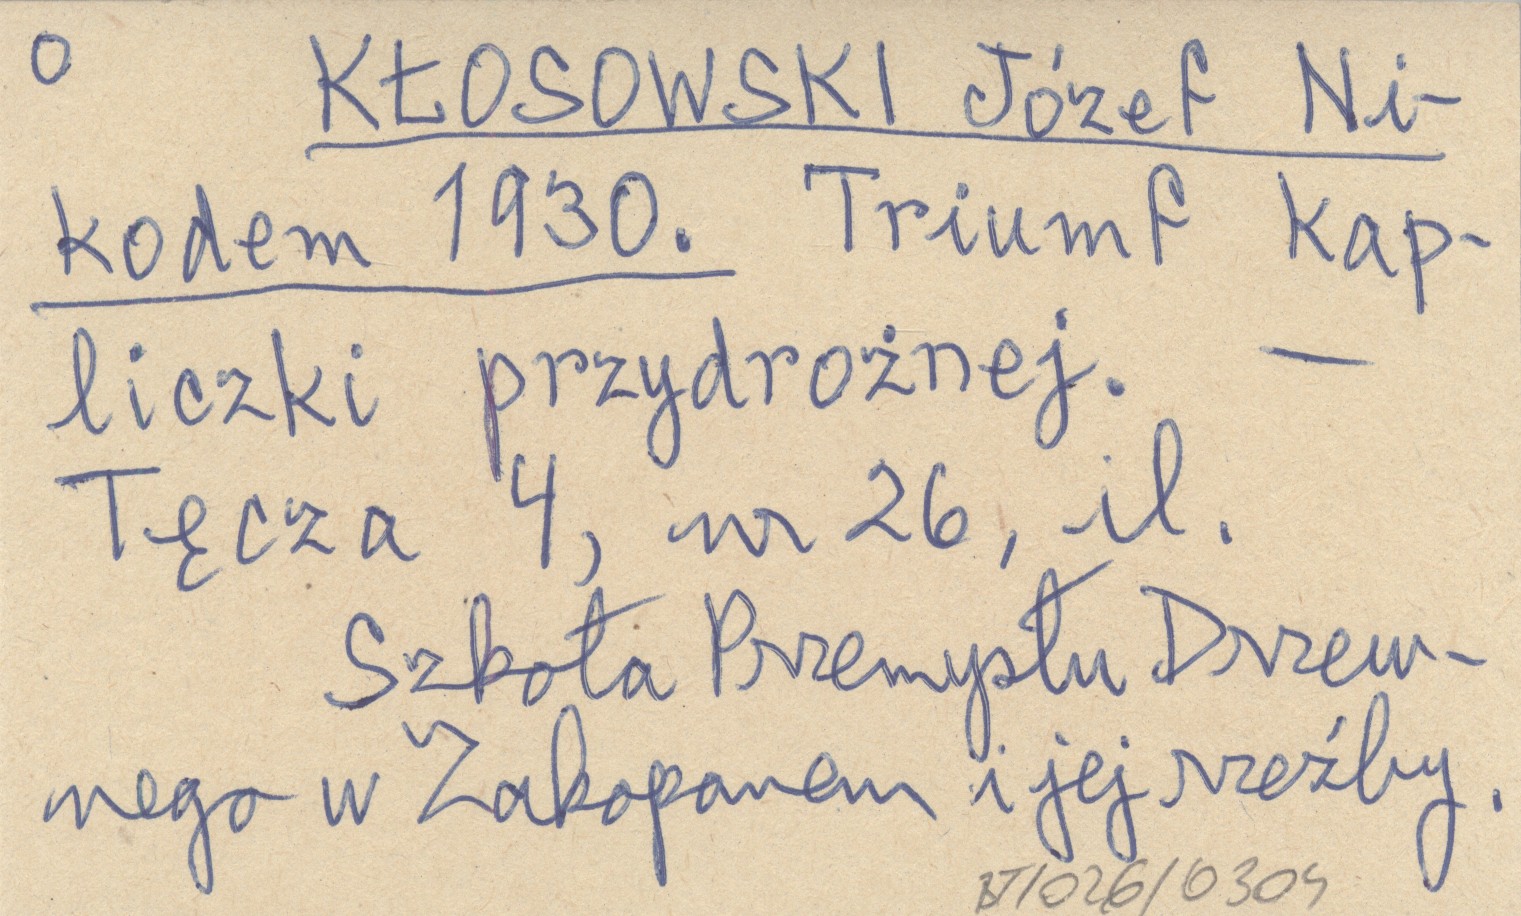 O KŁOSOWSKI Józef Ni-
kodem 1930. Triumf kap-
liczki przydrożnej. —
Tęcza 4, nr 26, il.
Szkoła Przemysłu Drzew-
nego w Zakopanem i jej rzeźby.
BT/026/0304